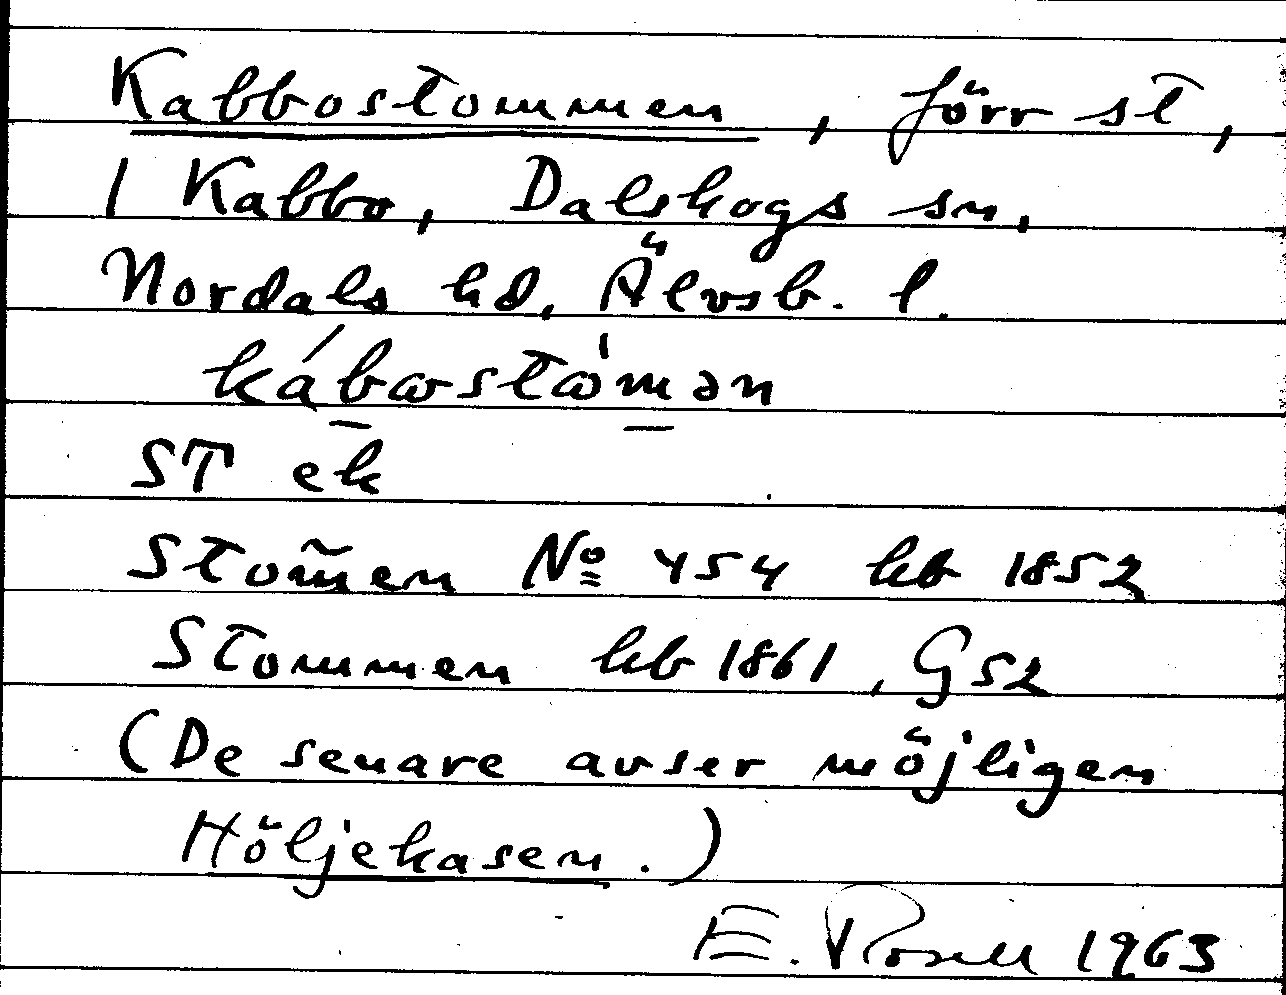 Kabbostommen, förr st,
1 Kabbo, Dalskogs sn,
Nordals hd, Älvsb. l.
kábωstω̍mən
ST ek
Stom̃en No 454 hb 1852
Stommen hb 1861, G52
(De senare avser möjligen
Höljekasen.)
E. Rosell 1963